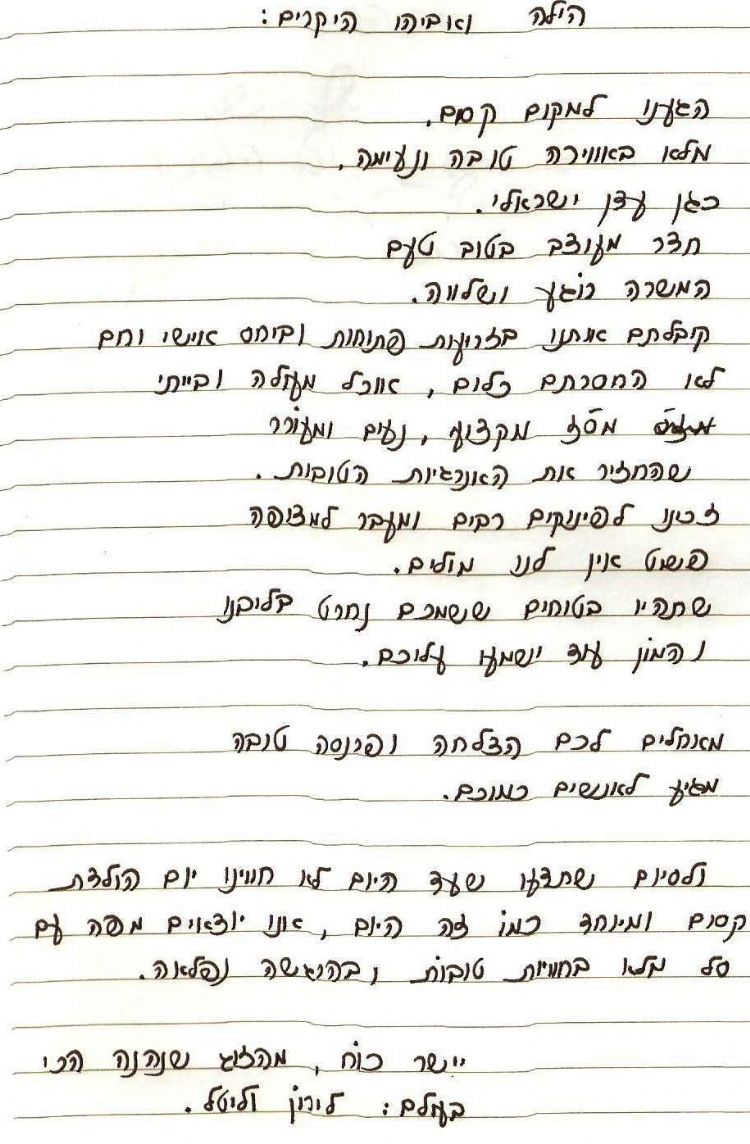 הילה ואביהו היקרים:
הגענו למקום קסום.
מלא באווירה טובה ונעימה.
כגן עדן ישראלי.
חדר מעוצב בטוב טעם
המשרה רוגע ושלווה.
קיבלתם אותנו בזריעות פתוחות וביחס אישי וחם
לא החסרתם כלום, אוכל מעולה ובייתי
מסז מקצועי, נעים ומעורר
שהחזיר את האנרגיות הטובות.
זכינו לפינוקים רבים ומעבר למצופה
פשוט אין לנו מילים.
שתהיו בטוחים ששמכם נחרט בליבנו
והמון עוד ישמעו עליכם.
מאחלים לכם הצלחה ופרנסה טובה
מגיע לאנשים כמוכם.
ולסיום שתדעו שעד היום לא חווינו יום הולדת
קסום ומיוחד כמו זה היום, אנו יוצאים מפה עם
סל מלא בחוויות טובות ובהרגשה נפלאה.
יישר כוח, מהזוג שנהנה הכי
בעולם: לירון וליטל.